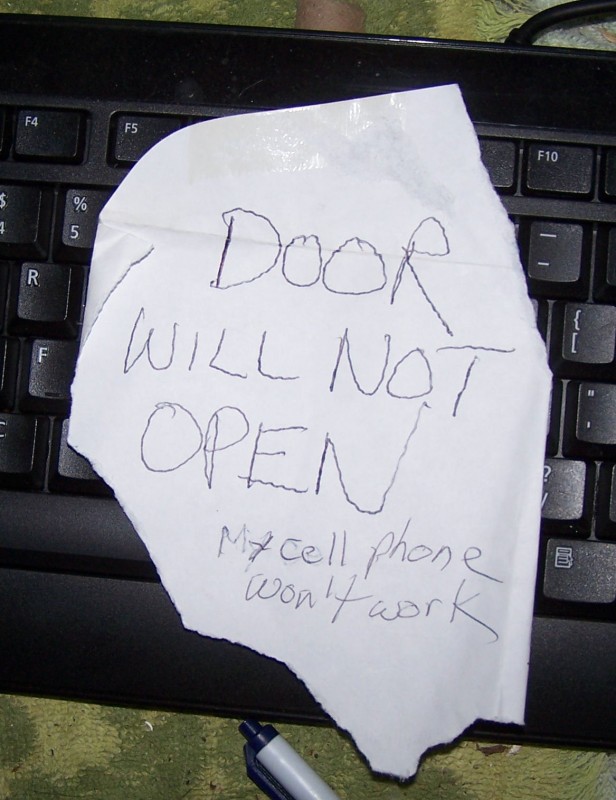 F4
F5
F10
$
4
%
5
R
F
DOOR
WILL NOT
OPEN
My cell phone
won't work
—
-
{
[
"
'
?
/